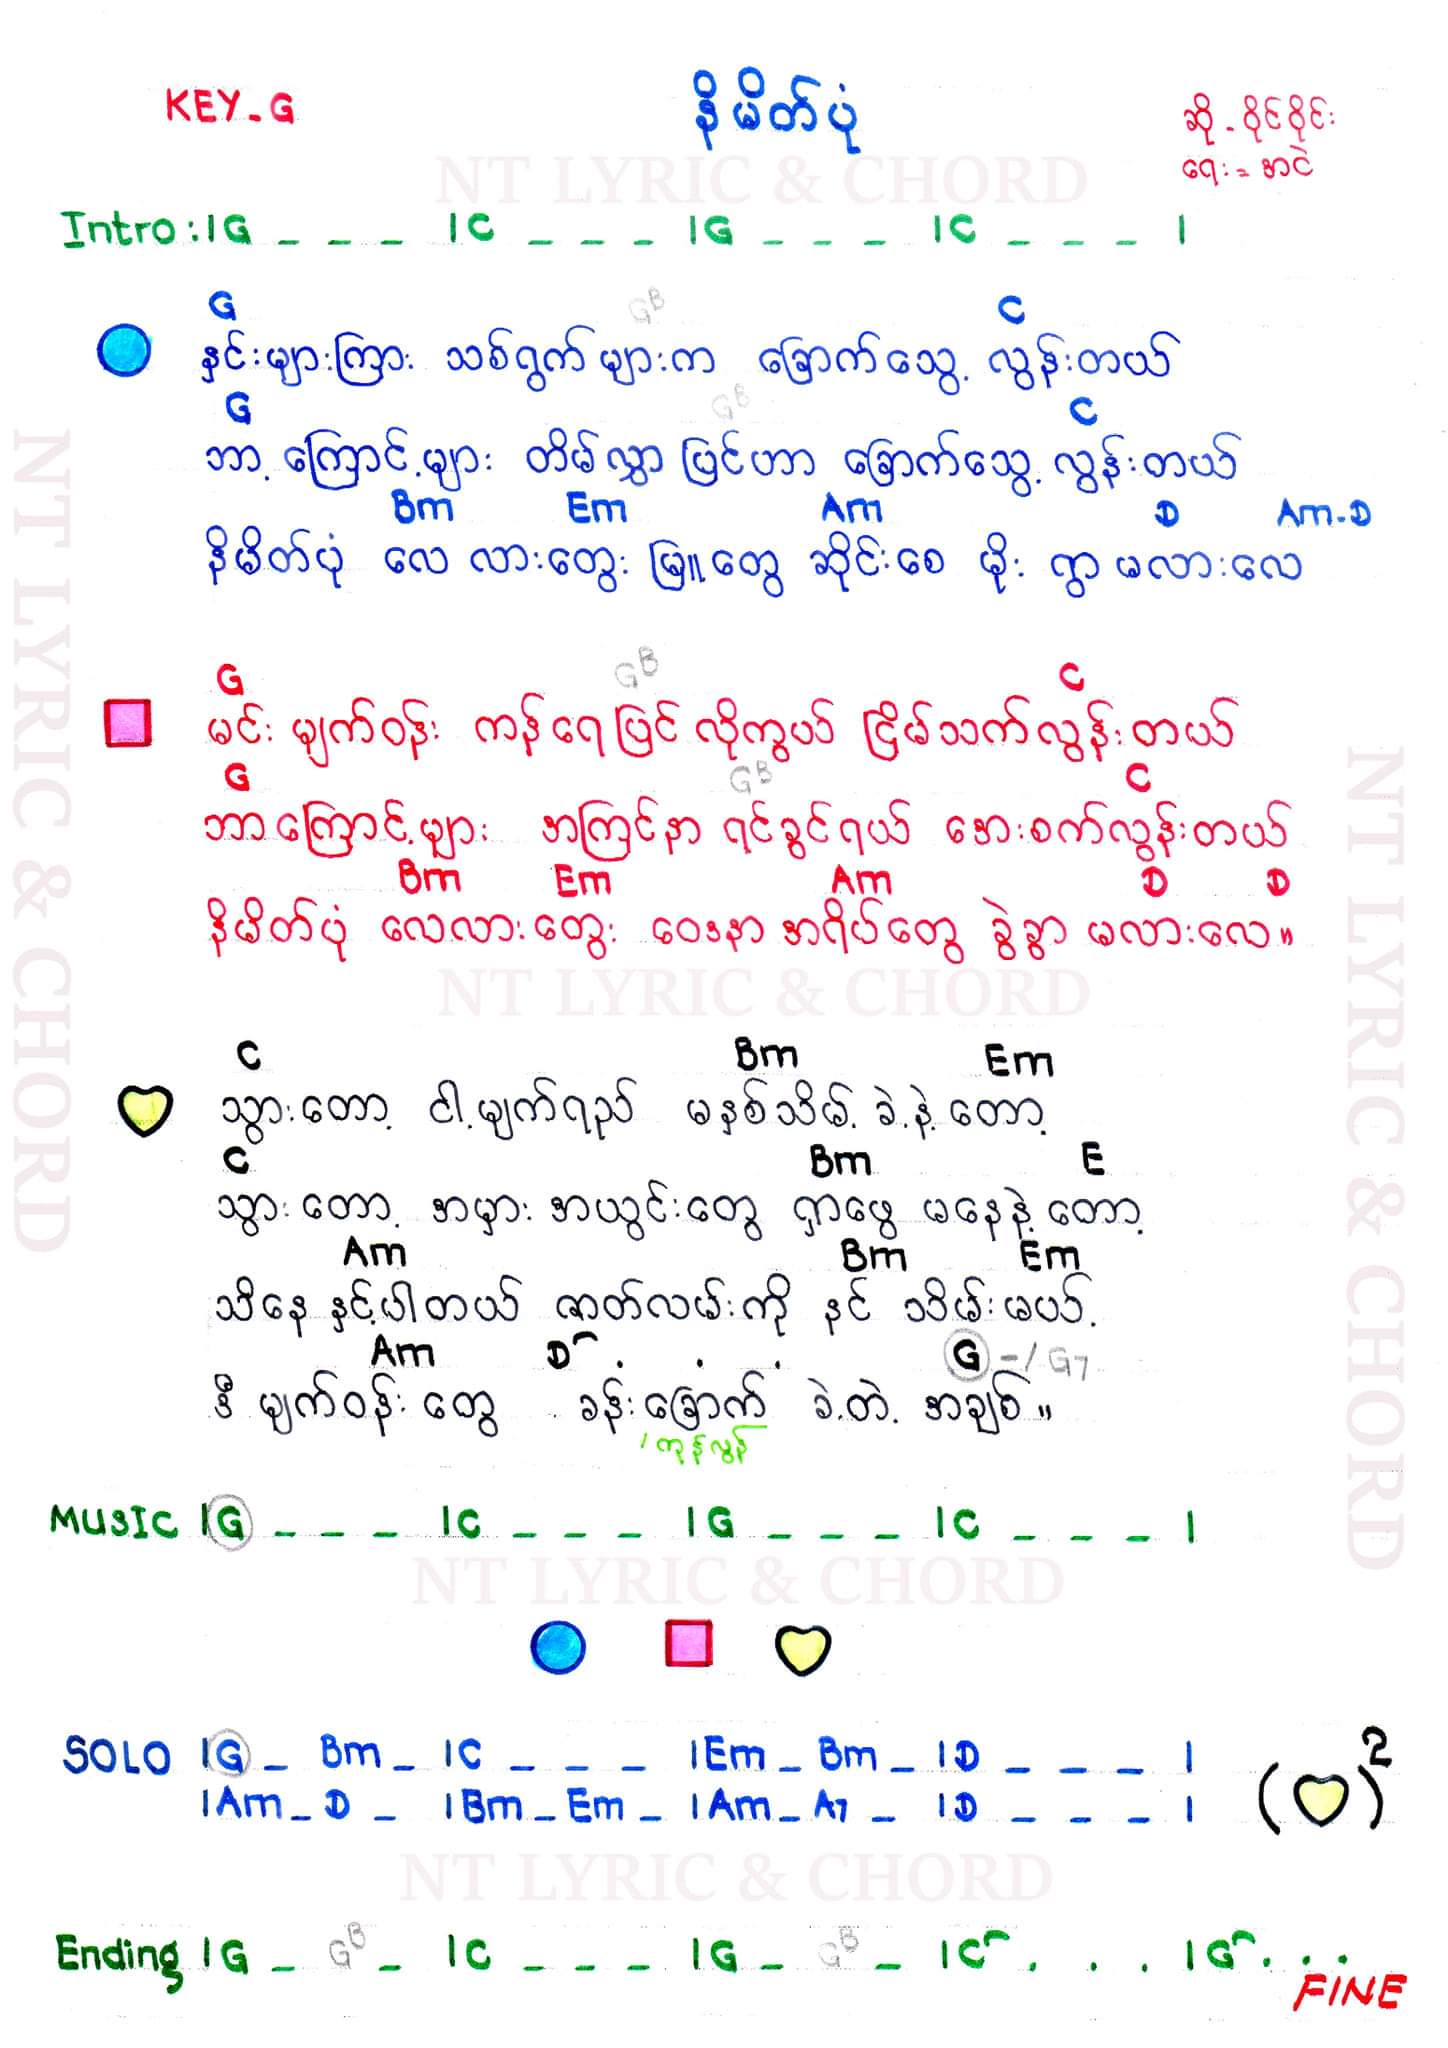 KEY-G
နိမိတ်ပုံ
ဆို - ဝိုင်ဝိုင်း
ရေး = အငဲ
NT LYRIC & CHORD
Intro: |G _ _ _ |C _ _ _ |G _ _ _ |C _ _ _ |
G GB C
နှင်းများကြား သစ်ရွက်များက ခြောက်သွေ့ လွန်းတယ်
G GB C
ဘာ့ကြောင့်များ တိမ်လွှာပြင်ဟာ ခြောက်သွေ့လွန်းတယ်
Bm Em Am D Am-D
နိမိတ်ပုံ လေ လားတွေး မြူတွေ ဆိုင်းစေ မိုး ရွာမလားလေ
G GB C
မင်း မျက်ဝန်း ကန်ရေပြင် လိုကွယ် ငြိမ်သက်လွန်းတယ်
G GB C
ဘာကြောင့်များ အကြင်နာ ရင်ခွင်ရယ် အေးစက်လွန်းတယ်
Bm Em Am D D
နိမိတ်ပုံ လေလားတွေး ဝေဒနာအရိပ်တွေ ခွဲခွာ မလားလေ။
NT LYRIC & CHORD
C Bm Em
သွားတော့ ငါ့မျက်ရည် မနှစ်သိမ့် ခဲ့နဲ့တော့
C Bm E
သွားတော့ အမှား အယွင်းတွေ ရှာဖွေ မနေနဲ့တော့
Am Bm Em
သိနေနှင့်ပါတယ် ဇာတ်လမ်းကို နင် သိမ်းမယ့်
Am D . . . G -/G7
ဒီ မျက်ဝန်းတွေ ခန်းခြောက် ခဲ့တဲ့ အချစ်။
/ ကုန်လွန်
MUSIC |G _ _ _ |C _ _ _ |G _ _ _ |C _ _ _ |
NT LYRIC & CHORD
SOLO |G _ Bm _ |C _ _ _ |Em _ Bm _ |D _ _ _ |
|Am _ D _ |Bm _ Em _ |Am _ A7 _ |D _ _ _ | ( )2
NT LYRIC & CHORD
Ending |G _ GB _ |C _ _ _ |G _ GB _ |C . . . |G . . .
FINE
NT LYRIC & CHORD
NT LYRIC & CHORD